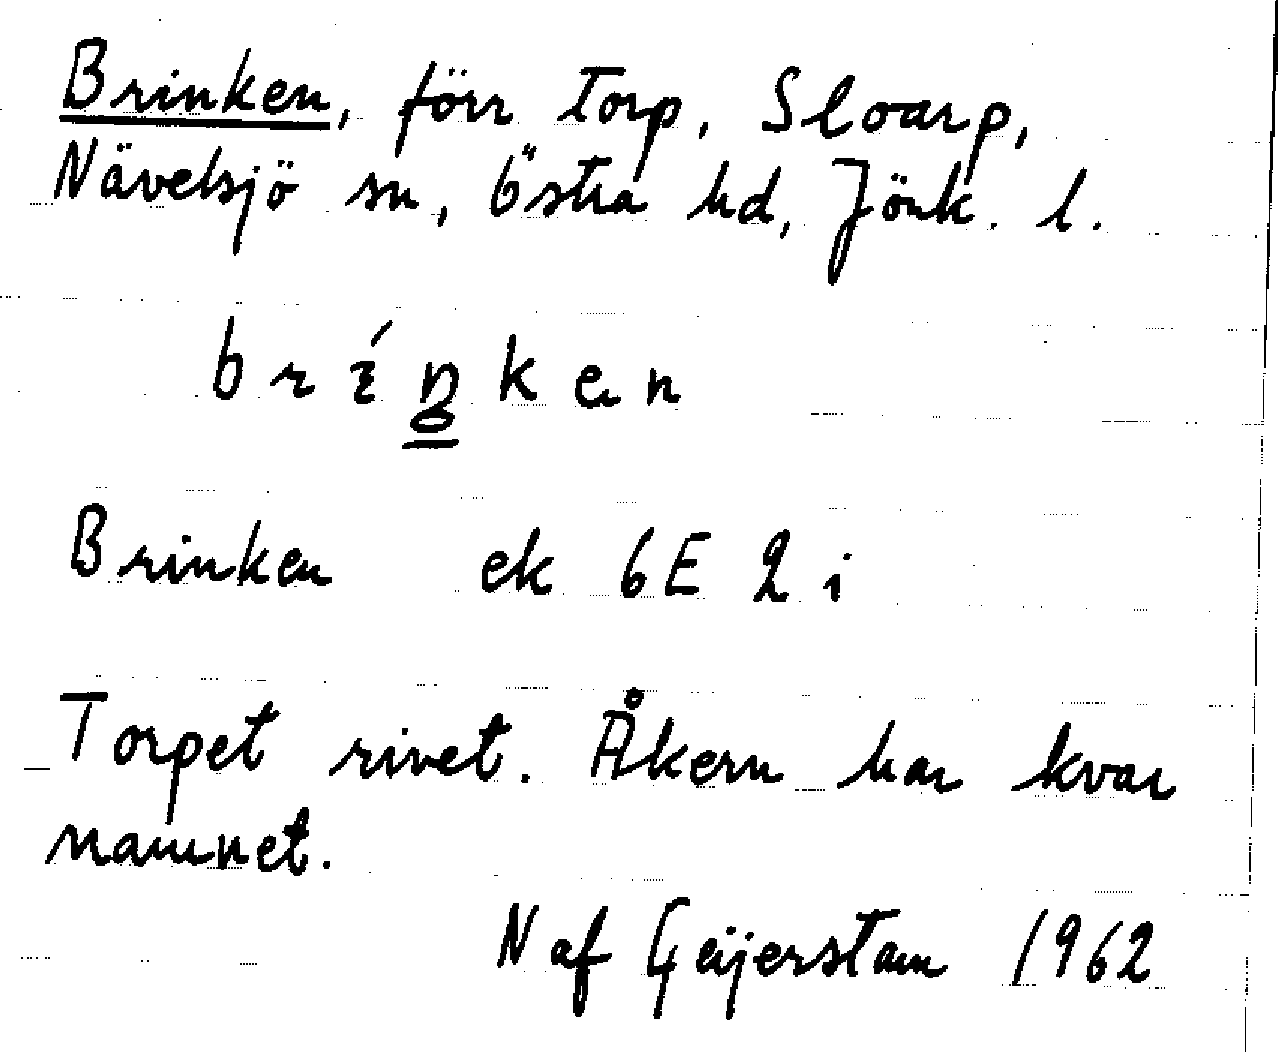 Brinken, förr torp, Sloarp,
Nävelsjö sn, Östra hd, Jönk. l.
bríŋken
Brinken ek 6E 2 i
Torpet rivet. Åkern har kvar
namnet.
N af Geijerstam 1962